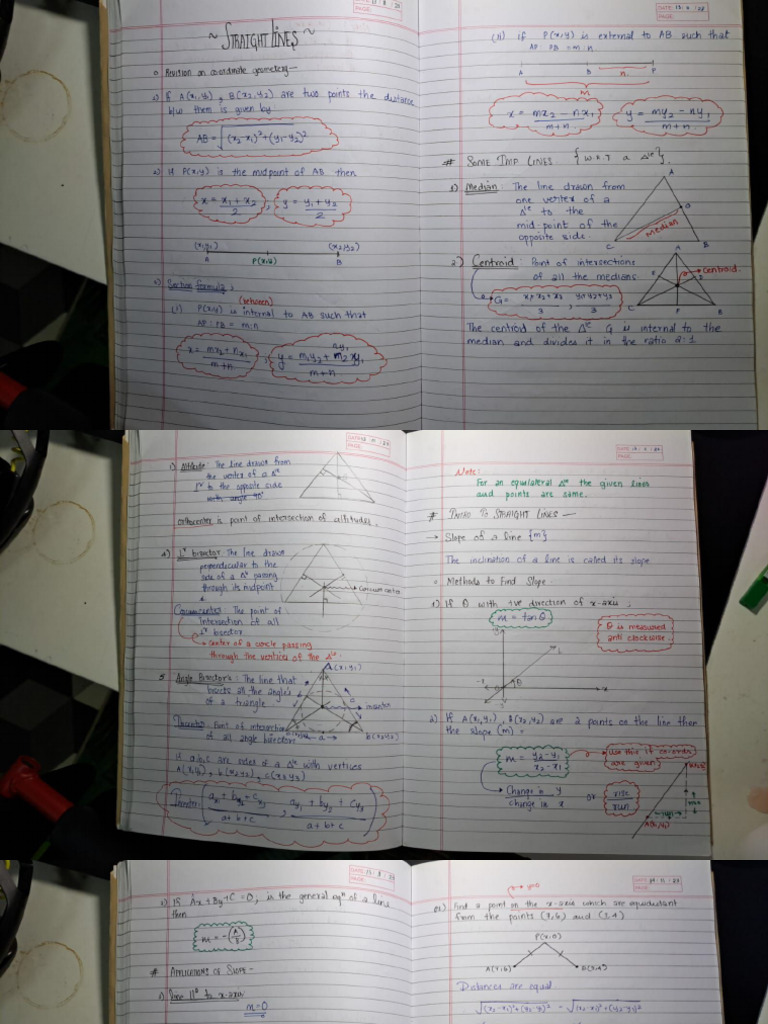 DATE
PAGE:
~ STRAIGHT LINES ~
Revision on coordinate geometery—
1) If A(x₁,y₁), B(x₂,y₂) are two points the distance
b/w them is given by
AB = √(x₂-x₁)²+(y₁-y₂)²
2) If P(x,y) is the midpoint of AB then
x = x₁ + x₂ / 2 , y = y₁ + y₂ / 2
(x₁,y₁) (x₂,y₂)
A P(x,y) B
Section formula,
(between)
(i) P(x,y) is internal to AB such that
AP : PB = m:n
x = mx₂ + nx₁ / m+n
ny₁
y = m₁y₂ + m₂ xy₁ / m+n
DATE
PAGE:
(ii) if P(x,y) is external to AB such that
AP : PB = m:n
A B n P
m
x = mx₂ - nx₁ / m-n , y = my₂ - ny₁ / m-n
# SOME IMP LINES. {w.r.T a Δˡᵉ}.
1) Median : The line drawn from
one vertex of a
Δˡᵉ to the
mid-point of the
opposite side.
A
median
C B
2) Centroid : Point of intersections
of all the medians
G = x₁+x₂+x₃ / 3 , y₁+y₂+y₃ / 3
A
centroid.
C F B
The centroid of the Δˡᵉ G is internal to the
median and divides it in the ratio 2:1
DATE
PAGE:
3) Altitude : The line drawn from
the vertex of a Δ
⊥ʳ to the opposite side
with angle 90°
orthocenter is point of intersection of altitudes.
4) ⊥ʳ bisector The line drawn
perpendicular to the
side of a Δ passing
through its midpoint
circumcenter
Circumcenter : The point of
intersection of all
⊥ʳ bisector
center of a circle passing
through the vertices of the Δˡᵉ.
5. Angle Bisector's : The line that
bisects all the angle's
of a triangle
A (x₁,y₁)
incenter
a
B(x₂,y₂)
Incenter : Point of intersection
of all angle bisector
If a,b,c are sides of a Δˡᵉ with vertices
A(x₁,y₁), B(x₂,y₂), C(x₃,y₃)
Incenter ( ax₁ + bx₂ + cx₃ / a+b+c , ay₁ + by₂ + cy₃ / a+b+c )
DATE
PAGE:
Note:
For an equilateral Δˡᵉ the given lines
and points are same.
# INTRO TO STRAIGHT LINES —
→ Slope of a line {m}
The inclination of a line is called its slope
Methods to Find Slope.
1) If θ with +ve direction of x-axis,
m = tan θ
θ is measured
anti clockwise.
L
-x θ x
2) If A(x₁,y₁), B(x₂,y₂) are 2 points on the line then
the slope (m) =
m = y₂ - y₁ / x₂ - x₁
use this if co-ords
are given
Change in y
change in x
or
rise
run
A(x₁,y₁)
DATE
PAGE:
3) If Ax + By + C = 0, is the general eqⁿ of a line
then
m = -(A/B)
# APPLICATIONS OF SLOPE -
1) line ||ˡ to x-axis
m = 0
DATE
PAGE:
y=0
Find a point on the x-axis which are equidistant
from the points (7,6) and (3,4)
P(x,0)
A(7,6) B(3,4)
Distances are equal
√(x₂-x₁)²+(y₂-y₁)² = √(x₂-x₁)²+(y₂-y₁)²